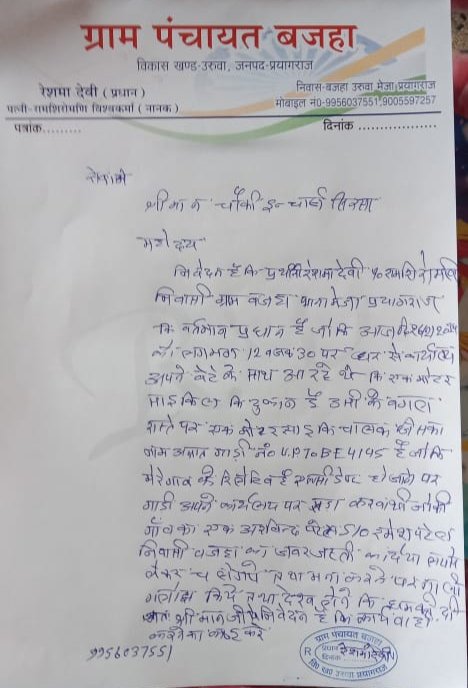 ग्राम पंचायत बजहा
विकास खण्ड-उरुवा, जनपद-प्रयागराज
रेशमा देवी (प्रधान)
पत्नी-रामशिरोमणि विश्वकर्मा (नानक)
निवास-बजहा उरुवा मेजा प्रयागराज
मोबाइल नं0-9956037551,9005597257
पत्रांक.......... दिनांक ..................
सेवा में
श्रीमान चौकी इन्चार्ज सिरसा
महोदय
निवेदन है कि प्रार्थी रेशमा देवी
निवासी ग्राम बजहा थाना मेजा प्रयागराज
कि वर्तमान प्रधान है जो कि आज
को लगभग 12 बजकर 30 पर घर से कार्यालय
अपने बेटे के साथ आ रहे थे कि एक मोटर
साइकिल कि दुकान है उसी के बगल
रास्ते पर एक मोटर साइकिल चालक जिसका
नाम गाड़ी नं0 U.P70BE4145 है जो कि
मेरे गांव के है हो जाने पर
गाड़ी अपने कार्यालय पर खड़ा
गाँव का एक अरविन्द पटेल S/O रमेश पटेल
निवासी बजहा का जबरजस्ती
लेकर तथा मना करने पर गाली
गलौज किये तथा कि
अतः श्रीमान जी से निवेदन है कि कार्यवाही
करने का कष्ट करें
9956037551
ग्राम पंचायत बजहा
प्रधान रेशमा देवी
दिनांक
वि0 ख0 उरुवा प्रयागराज